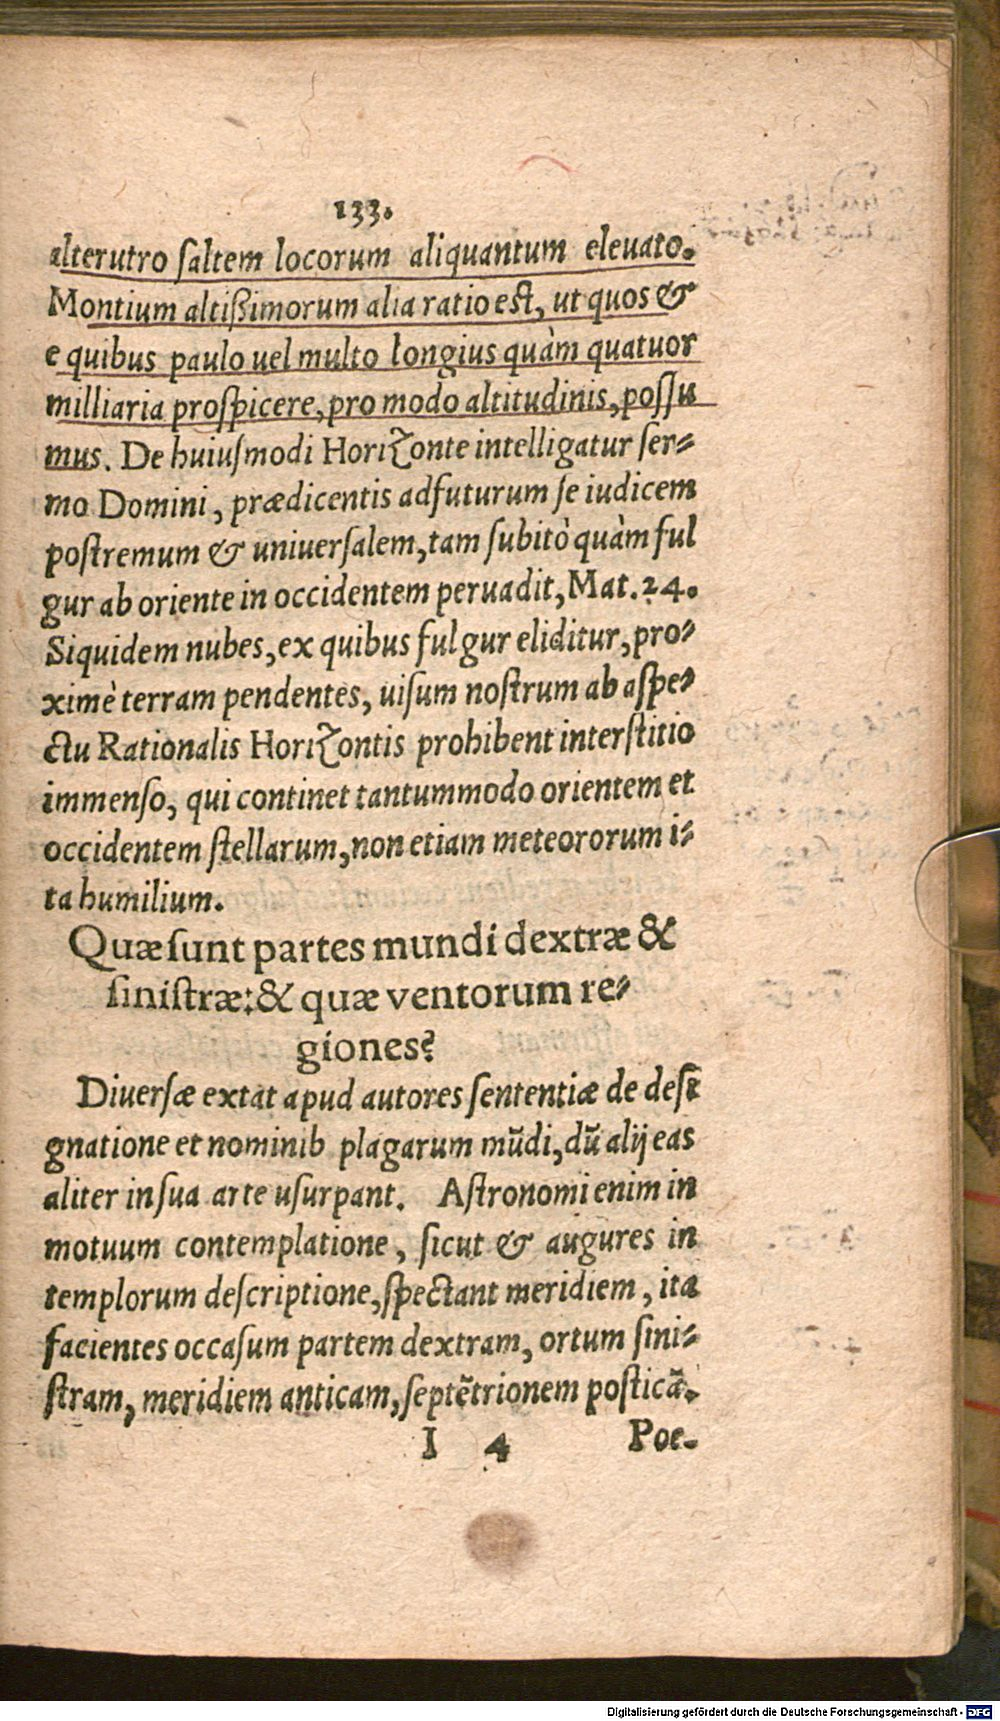 133.
alterutro ſaltem locorum aliquantum eleuato.
Montium altißimorum alia ratio eſt, ut quos &
e quibus paulo uel multo longius quàm quatuor
milliaria proſpicere, pro modo altitudinis, poſſu
mus. De huiuſmodi Horizonte intelligatur ſer-
mo Domini, prædicentis adfuturum ſe iudicem
poſtremum & uniuerſalem, tam ſubitò quàm ful
gur ab oriente in occidentem peruadit, Mat. 24.
Siquidem nubes, ex quibus fulgur eliditur, pro-
ximè terram pendentes, uiſum noſtrum ab aſpe-
ctu Rationalis Horizontis prohibent interſtitio
immenſo, qui continet tantummodo orientem et
occidentem ſtellarum, non etiam meteororum i-
ta humilium.
Quæ ſunt partes mundi dextræ &
ſiniſtræ: & quæ ventorum re-
giones?
Diuerſæ extāt apud autores ſententiæ de deſi
gnatione et nominib plagarum mūdi, dū alij eas
aliter in ſua arte uſurpant. Aſtronomi enim in
motuum contemplatione, ſicut & augures in
templorum deſcriptione, ſpectant meridiem, ita
facientes occaſum partem dextram, ortum ſini-
ſtram, meridiem anticam, ſeptētrionem poſticā.
I 4 Poe-
Digitalisierung gefördert durch die Deutsche Forschungsgemeinschaft - DFG